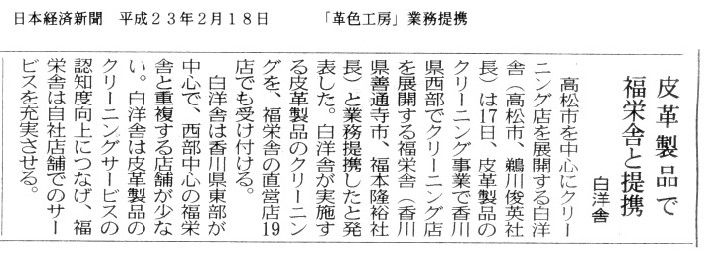 日本経済新聞　平成２３年２月１８日　　「革色工房」業務提携
皮革製品で
福栄舎と提携
白洋舎
高松市を中心にクリー
ニング店を展開する白洋
舎（高松市、鵜川俊英社
長）は17日、皮革製品の
クリーニング事業で香川
県西部でクリーニング店
を展開する福栄舎（香川
県善通寺市、福本隆裕社
長）と業務提携したと発
表した。白洋舎が実施す
る皮革製品のクリーニン
グを、福栄舎の直営店19
店でも受け付ける。
白洋舎は香川県東部が
中心で、西部中心の福栄
舎と重複する店舗が少な
い。白洋舎は皮革製品の
クリーニングサービスの
認知度向上につなげ、福
栄舎は自社店舗でのサー
ビスを充実させる。